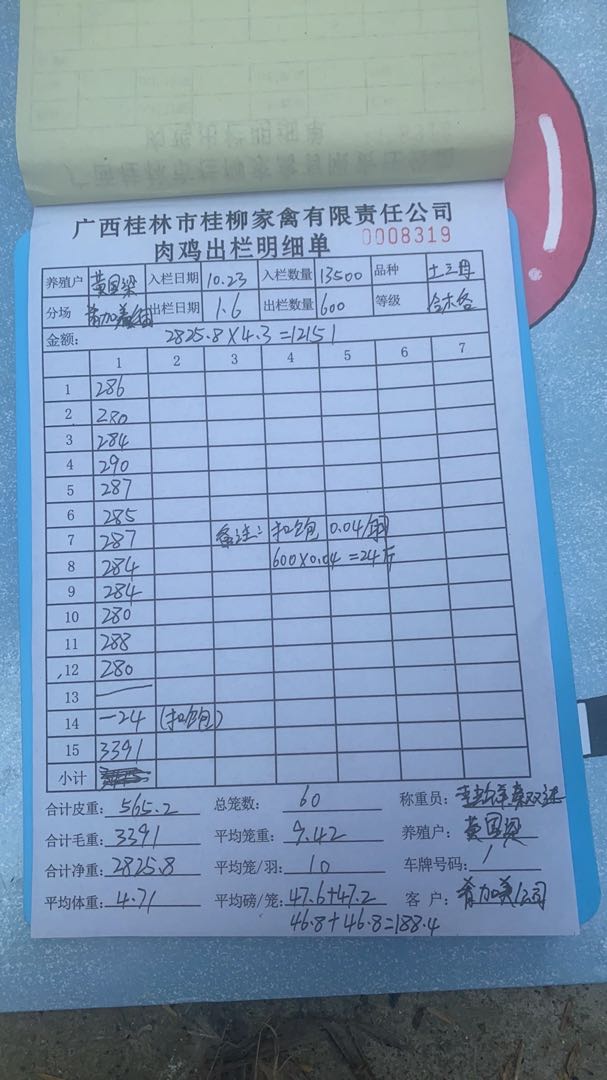 广西桂林市桂柳家禽有限责任公司
肉鸡出栏明细单 0008319
养殖户 黄国梁 入栏日期 10.23 入栏数量 13500 品种 土三母
分场 出栏日期 1.6 出栏数量 600 等级 合木各
金额: 2825.8×4.3=12151
1 2 3 4 5 6 7
1 286
2 280
3 284
4 290
5 287
6 285
7 287 备注: 扣饱 0.04/羽
8 284 600×0.04=24斤
9 284
10 280
11 288
12 280
13 —
14 -24 (扣饱)
15 3391
小计
合计皮重: 565.2 总笼数: 60 称重员:
合计毛重: 3391 平均笼重: 9.42 养殖户: 黄国梁
合计净重: 2825.8 平均笼/羽: 10 车牌号码: 1
平均体重: 4.71 平均磅/笼: 47.6+47.2 客户: 公司
46.8+46.8=188.4